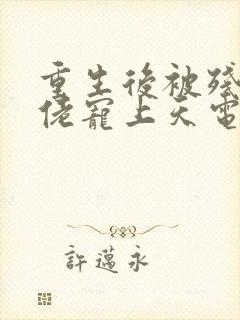 重生後被殘
佬寵上天電
許邁永